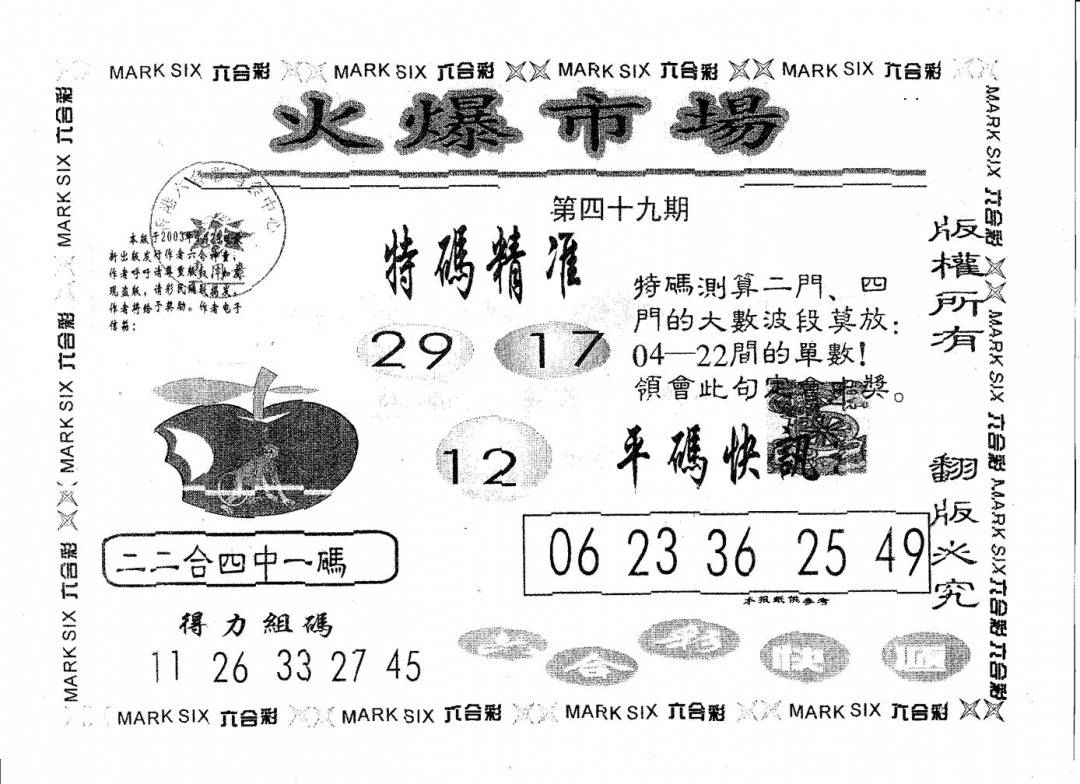 MARK SIX 六合彩 MARK SIX 六合彩 MARK SIX 六合彩 MARK SIX 六合彩
火爆市場
第四十九期
特碼精准
29 17
12
本版于2003年
新出版发行作者六合神童,
作者呼吁请尊重版权,如发
现盗版,请彩民踊跃揭发,
作者将给予奖励。作者电子
信箱:
特碼測算二門、四
門的大數波段莫放:
04—22間的單數!
領會此句定會中獎。
平碼快訊
06 23 36 25 49
本报纸供参考
二二合四中一碼
得力組碼
11 26 33 27 45
版權所有
翻版必究
合彩快
MARK SIX 六合彩 MARK SIX 六合彩 MARK SIX 六合彩
MARK SIX 六合彩 MARK SIX 六合彩 MARK SIX 六合彩 六合彩
MARK SIX 六合彩 MARK SIX 六合彩 MARK SIX 六合彩 MARK SIX 六合彩